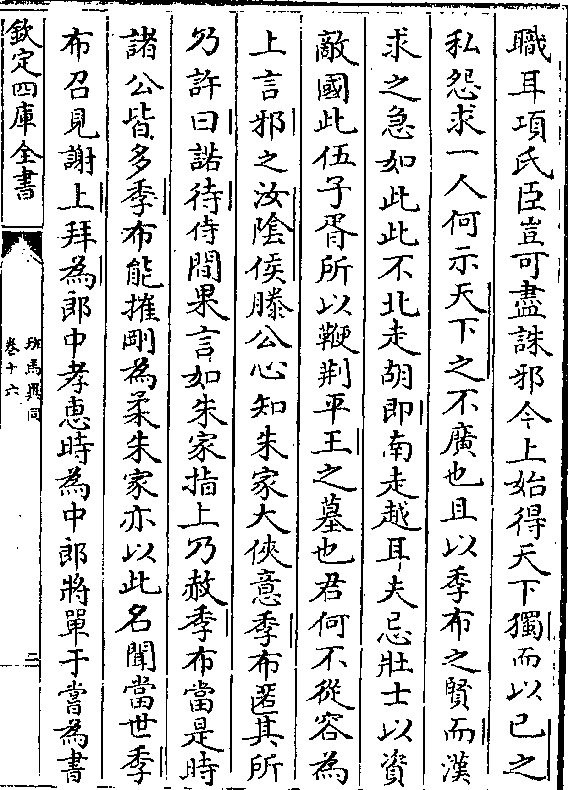 職耳項氏臣豈可盡誅邪今上始得天下獨而以己之
私怨求一人何示天下之不廣也且以季布之賢而漢
求之急如此此不北走胡即南走越耳夫忌壯士以資
敵國此伍子胥所以鞭荆平王之墓也君何不從容為
上言邪之汝隂侯滕公心知朱家大俠意季布匿其所
乃許曰諾待侍間果言如朱家指上乃赦季布當是時
諸公皆多季布能摧剛為柔朱家亦以此名聞當世季
布召見謝上拜為郎中孝惠時為中郎將單于嘗為書
欽定四庫全書
班馬異同
卷十六
三